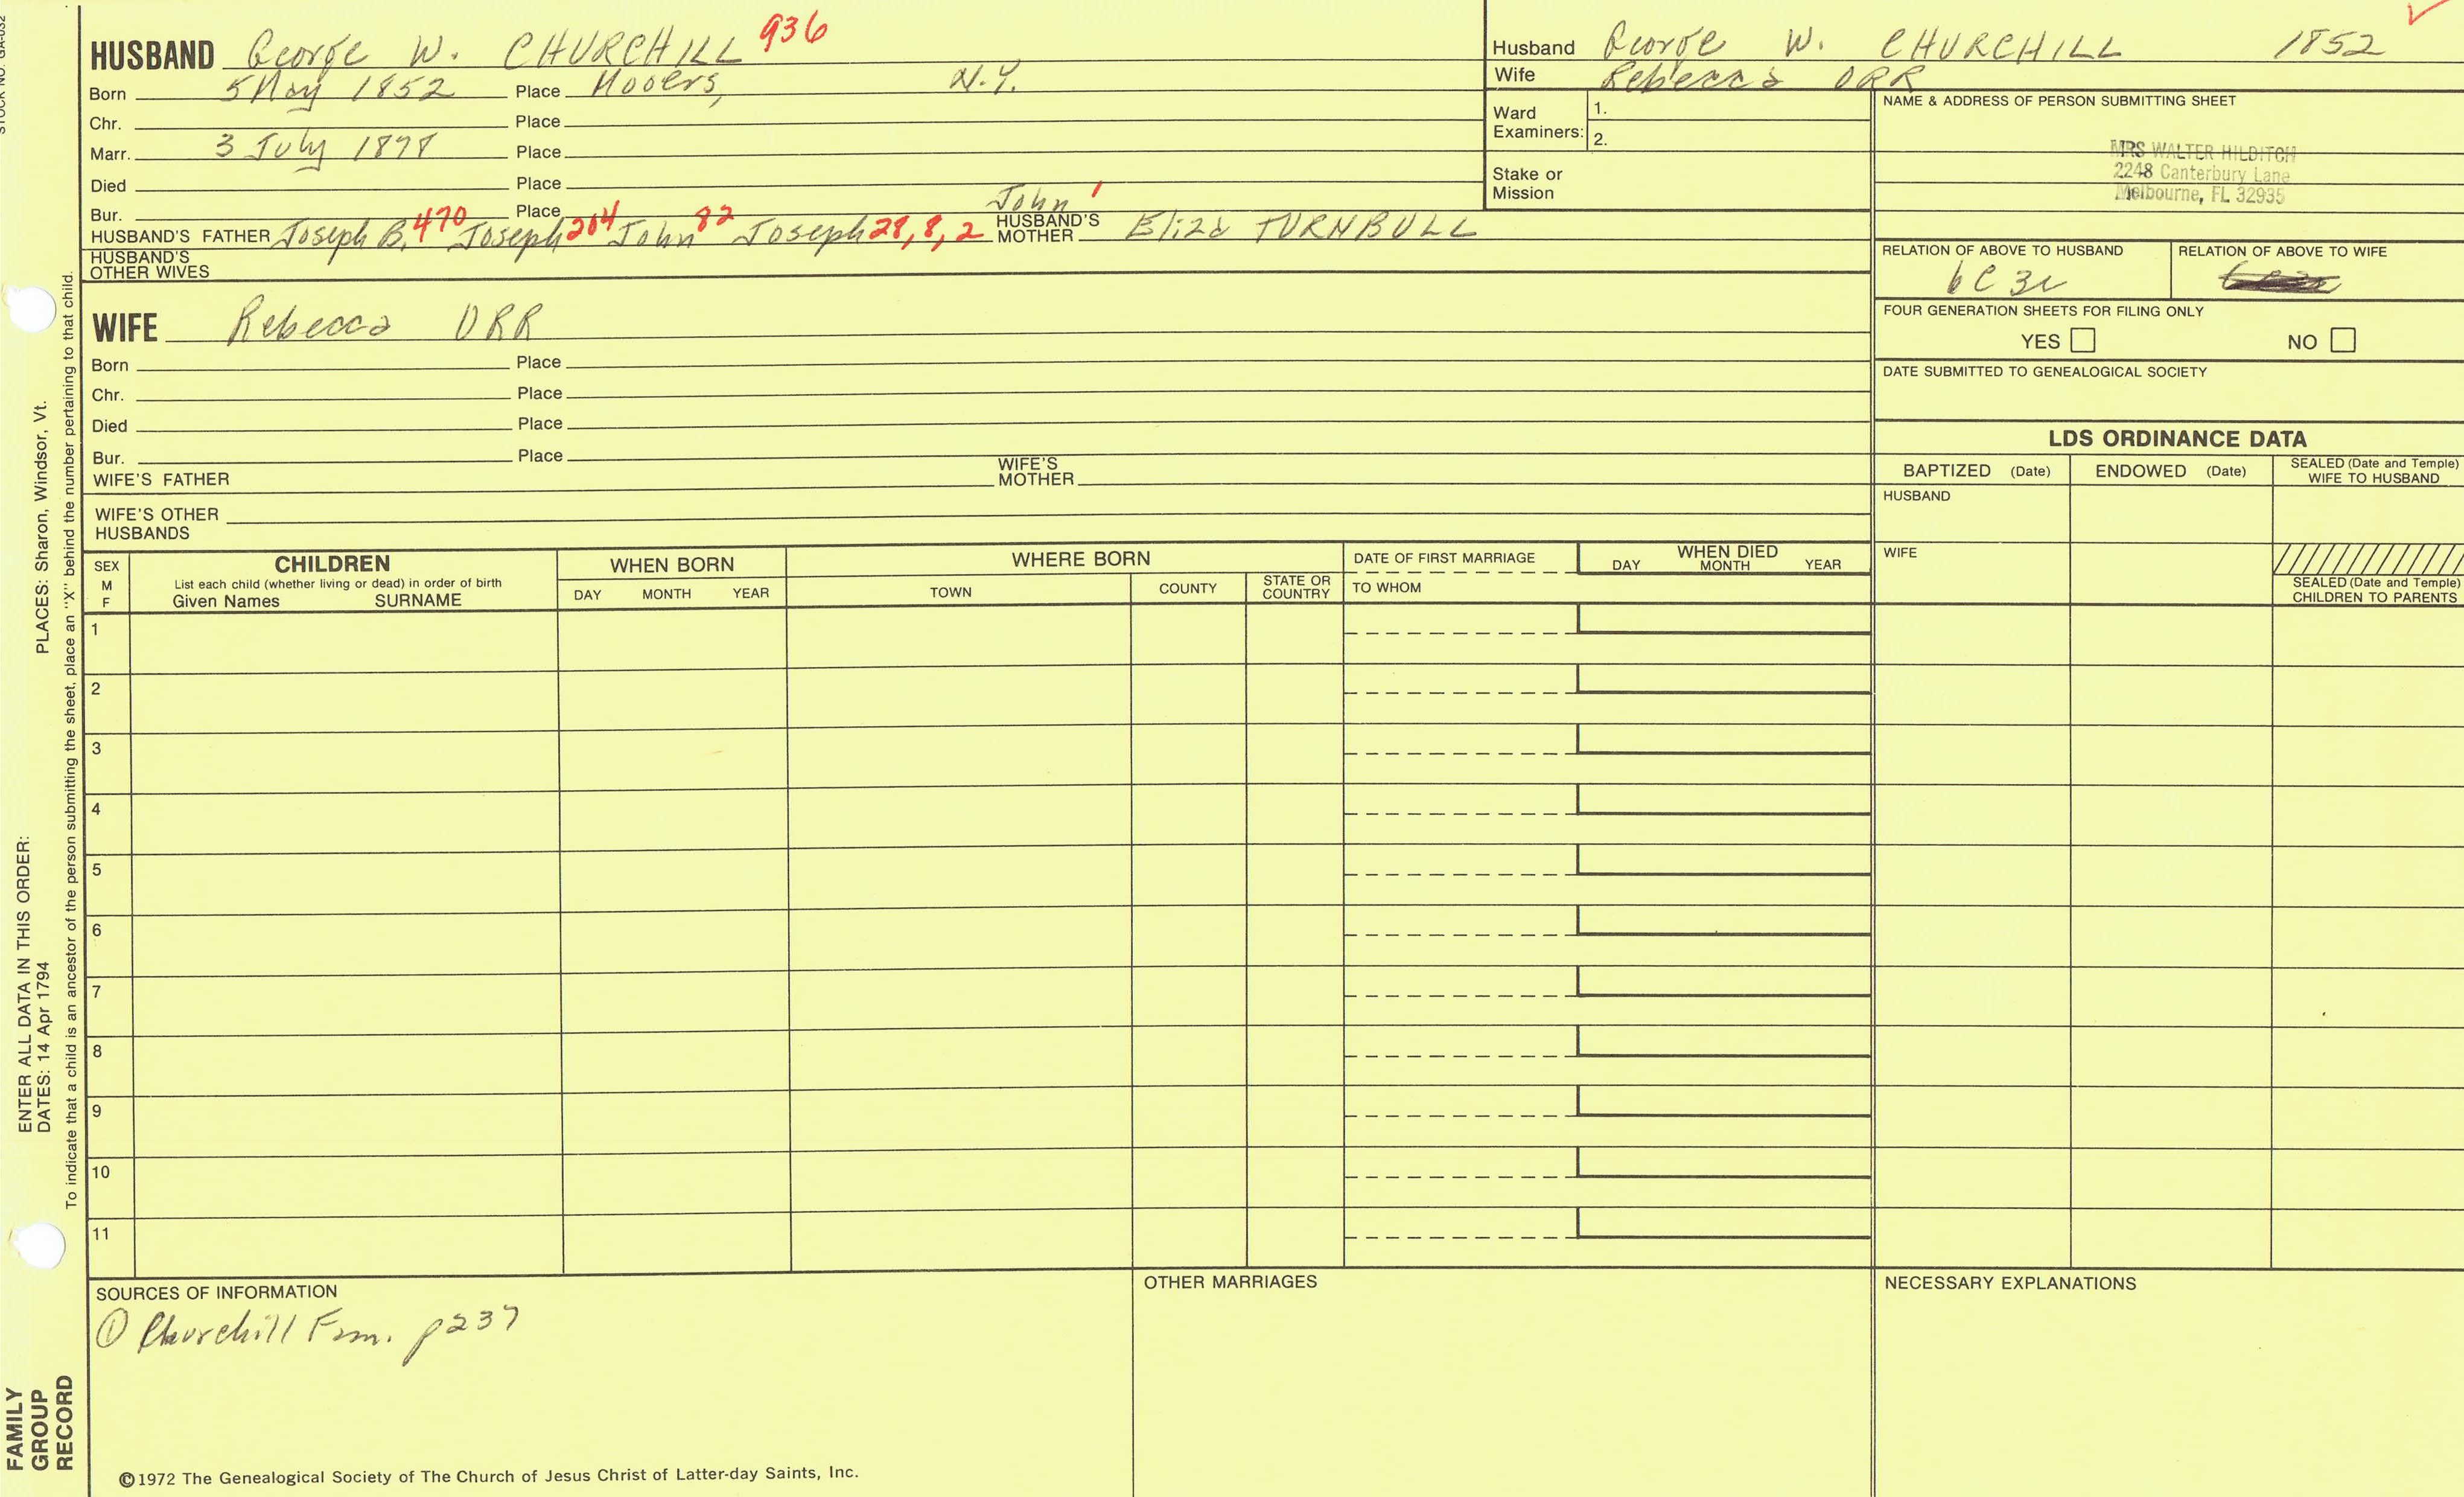 HUSBAND George W. CHURCHILL 936
Born 5 May 1852 Place Mooers, N.Y.
Chr. Place
Marr. 3 July 1878 Place
Died Place
Bur. Place
John 1
HUSBAND'S FATHER Joseph B. 470 Joseph 204 John 82 Joseph 28, 8, 2 HUSBAND'S MOTHER Eliza TURNBULL
HUSBAND'S OTHER WIVES
WIFE Rebecca ORR
Born Place
Chr. Place
Died Place
Bur. Place
WIFE'S FATHER WIFE'S MOTHER
WIFE'S OTHER HUSBANDS
Husband George W. CHURCHILL 1852
Wife Rebecca ORR
Ward Examiners: 1.
2.
Stake or Mission
NAME & ADDRESS OF PERSON SUBMITTING SHEET
MRS WALTER HILDITCH
2248 Canterbury Lane
Melbourne, FL 32935
RELATION OF ABOVE TO HUSBAND RELATION OF ABOVE TO WIFE
6C3r
FOUR GENERATION SHEETS FOR FILING ONLY
YES NO
DATE SUBMITTED TO GENEALOGICAL SOCIETY
LDS ORDINANCE DATA
BAPTIZED (Date) ENDOWED (Date) SEALED (Date and Temple) WIFE TO HUSBAND
HUSBAND
WIFE
SEALED (Date and Temple) CHILDREN TO PARENTS
SEX M F
CHILDREN
List each child (whether living or dead) in order of birth
Given Names SURNAME
WHEN BORN
DAY MONTH YEAR
WHERE BORN
TOWN COUNTY STATE OR COUNTRY
DATE OF FIRST MARRIAGE
TO WHOM
WHEN DIED
DAY MONTH YEAR
1
2
3
4
5
6
7
8
9
10
11
SOURCES OF INFORMATION
① Churchill Fam. p237
OTHER MARRIAGES
NECESSARY EXPLANATIONS
©1972 The Genealogical Society of The Church of Jesus Christ of Latter-day Saints, Inc.
STOCK NO. GA-032
ENTER ALL DATA IN THIS ORDER:
DATES: 14 Apr 1794 PLACES: Sharon, Windsor, Vt.
To indicate that a child is an ancestor of the person submitting the sheet, place an "X" behind the number pertaining to that child.
FAMILY
GROUP
RECORD